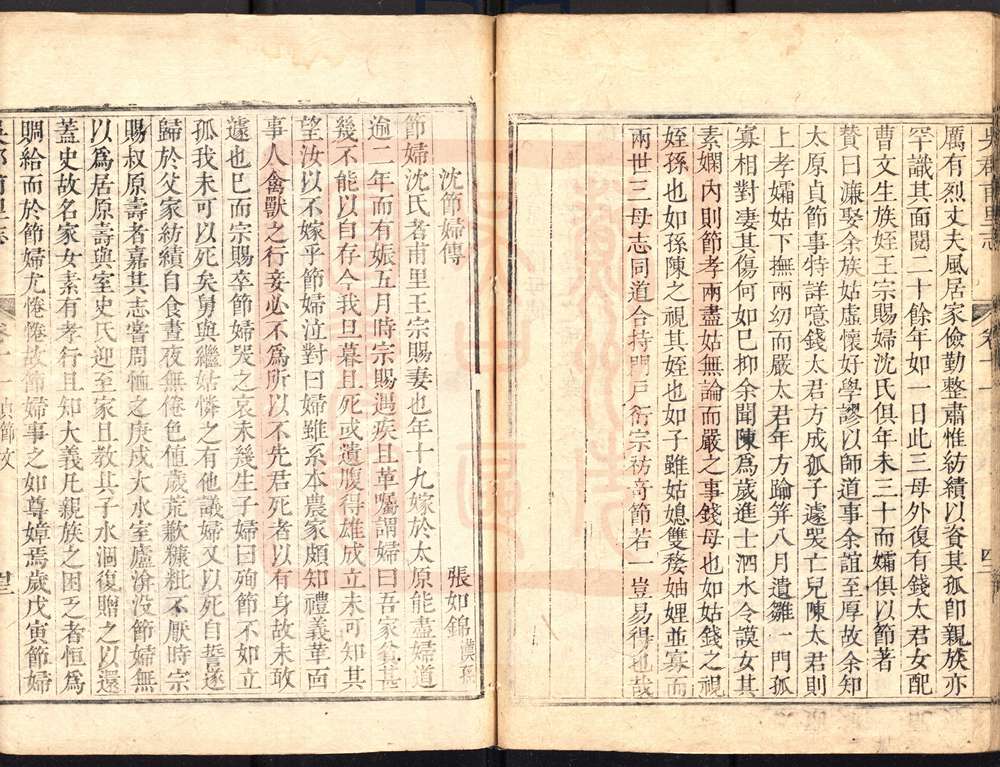 吳郡甫里志 卷十一 四二
厲有烈丈夫風居家儉勤整肅惟紡績以資其孤卽親族亦
罕識其面閱二十餘年如一日此三母外復有錢太君女配
曹文生族姪王宗賜婦沈氏俱年未三十而孀俱以節著
贊曰濂娶余族姑虛懷好學謬以師道事余誼至厚故余知
太原貞節事特詳噫錢太君方成孤子遽哭亡兒陳太君則
上孝孀姑下撫兩幼而嚴太君年方踰笄八月遺雛一門孤
寡相對淒其傷何如已抑余聞陳爲歲進士泗水令謨女其
素嫻內則節孝兩盡姑無論而嚴之事錢母也如姑錢之視
姪孫也如孫陳之視其姪也如子雖姑媳雙嫠妯娌並寡而
兩世三母志同道合持門戶衍宗祊奇節若一豈易得也哉
沈節婦傳
張如錦
節婦沈氏者甫里王宗賜妻也年十九嫁於太原能盡婦道
逾二年而有娠五月時宗賜遇疾且革囑謂婦曰吾家貧甚
幾不能以自存今我旦暮且死或遺腹得雄成立未可知其
望汝以不嫁乎節婦泣對曰婦雖系本農家頗知禮義華而
事人禽獸之行妾必不爲所以不先君死者以有身故未敢
遽也已而宗賜卒節婦哭之哀未幾生子婦曰殉節不如立
孤我未可以死矣舅與繼姑憐之有他議婦又以死自誓遂
歸於父家紡績自食晝夜無倦色值歲荒歉糠粃不厭時宗
賜叔原壽者嘉其志嘗周恤之庚戌大水室廬渰没節婦無
以爲居原壽與室史氏迎至家且教其子水涸復贈之以還
蓋史故名家女素有孝行且知大義凡親族之困乏者恒爲
賙給而於節婦尤惓惓故節婦事之如尊嫜焉歲戊寅節婦
吳郡甫里志 卷十一 貞節文